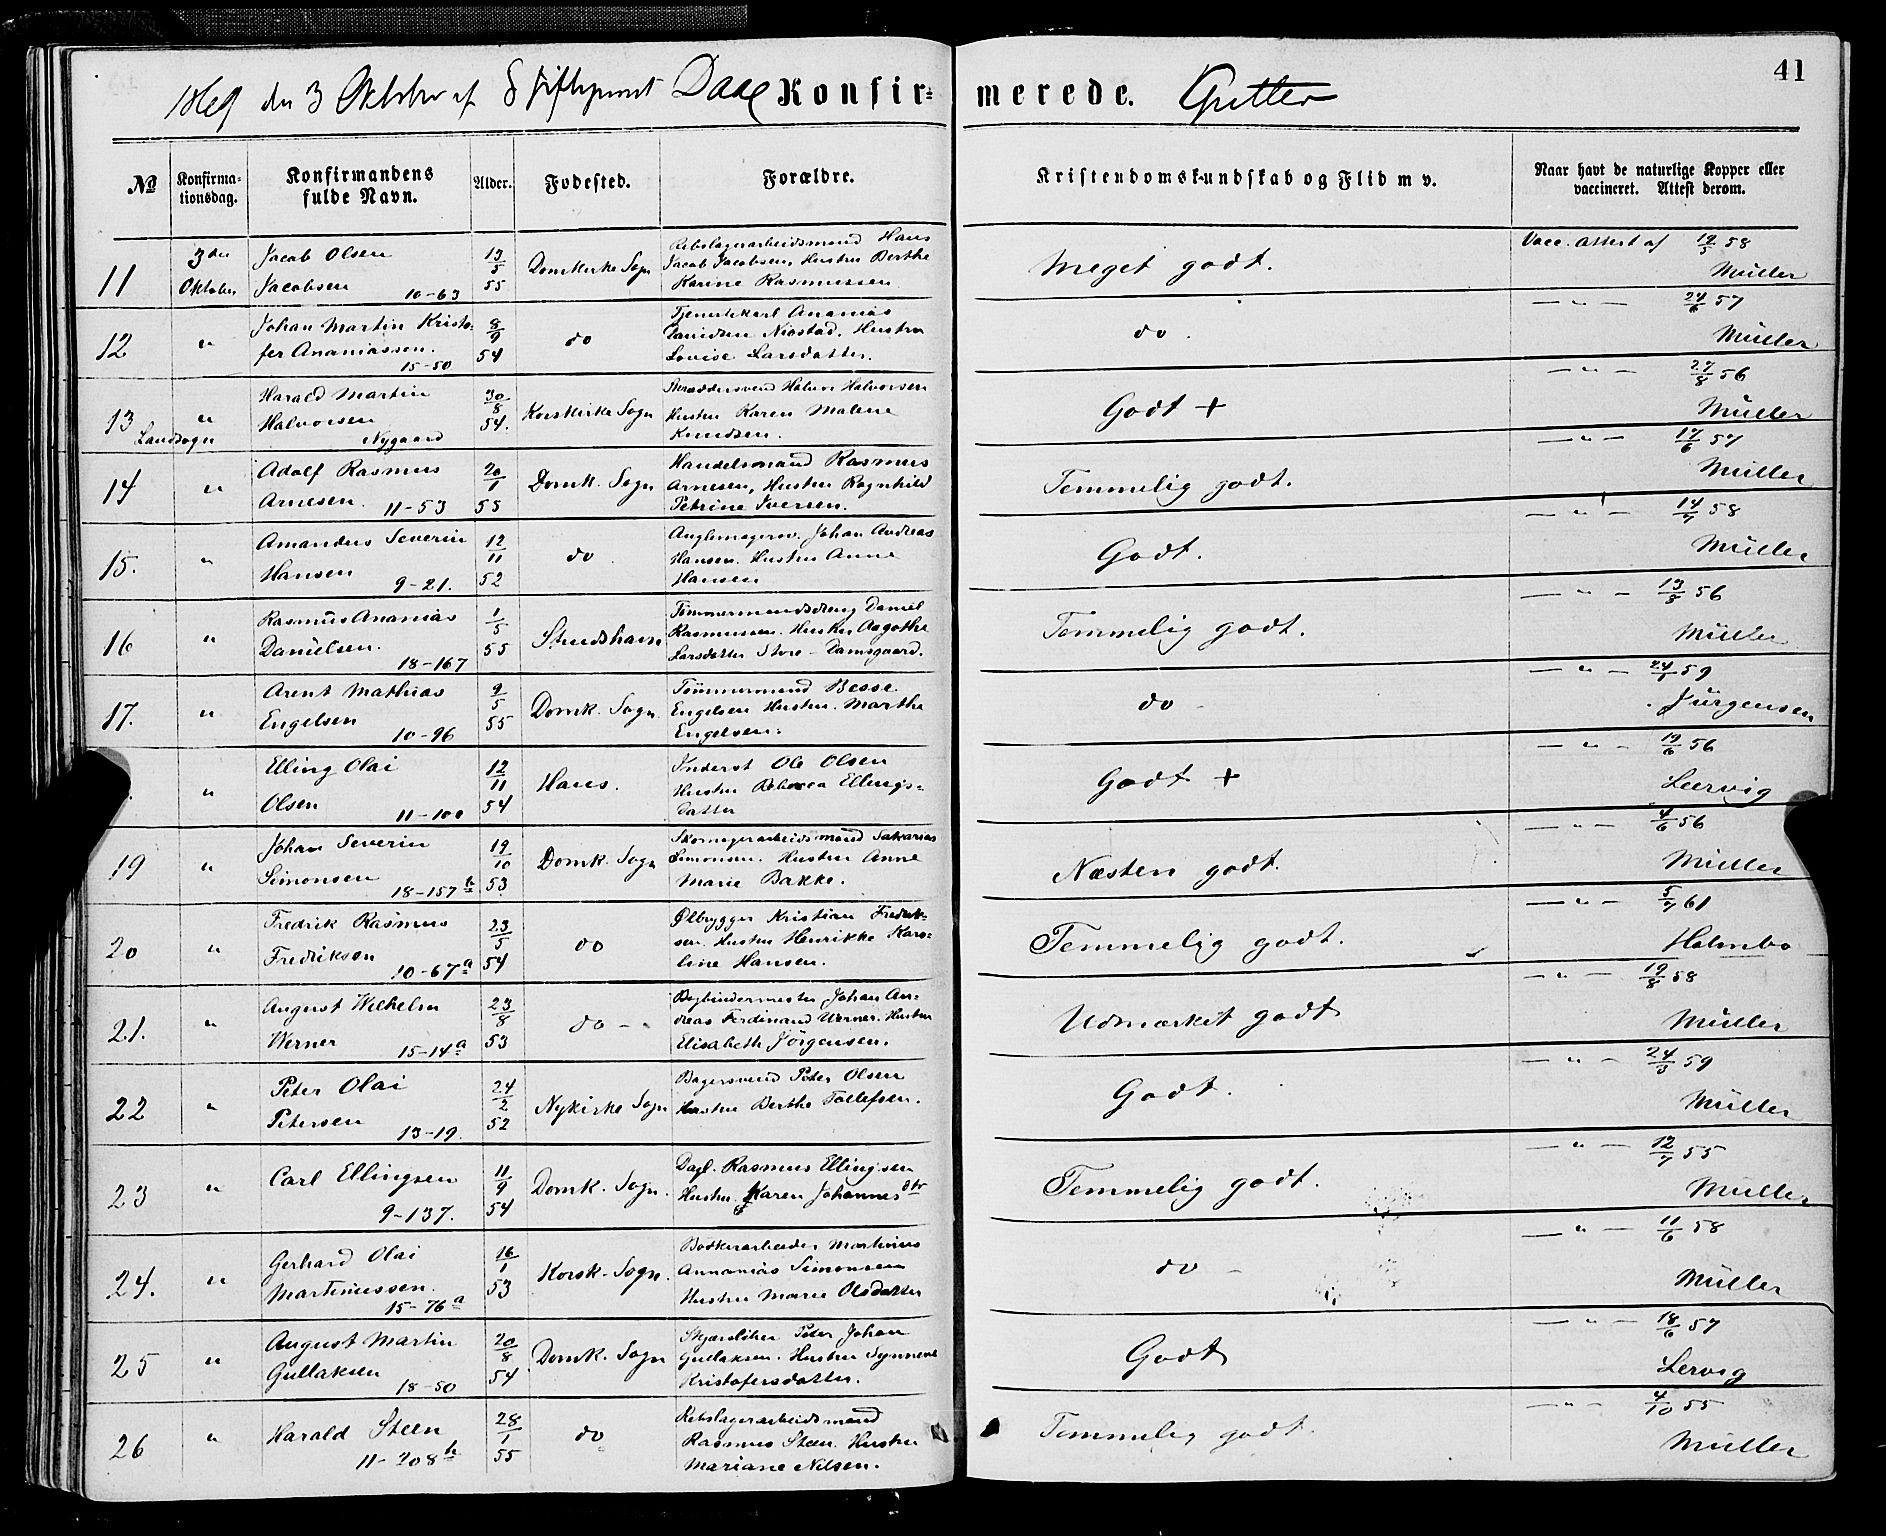 41
1869 den 3 Oktober af Stiftsprovst Daae Konfir= merede. Gutter
№ Konfirma-tionsdag. Konfirmandens fulde Navn. Alder. Fødested. Forældre. Kristendomskundskab og Flid m v. Naar havt de naturlige Kopper eller vaccineret. Attest derom.
11 3die Jacob Olsen 13/5 Domkirke Sogn Rebslagerarbeidsmand Hans Meget godt. Vacc. Attest af 12/5 58
Oktober Jacobsen 10-63 55 Jacob Jacobsen, Hustru Berthe Müller
Karine Rasmussen
12 " Johan Martin Kristo- 8/9 do Tjenestekarl Ananias do. — " — 24/6 57
fer Ananiassen. 54 Hustru Müller
15-50 Lovise Larsdatter.
13 " Harald Martin 30/8 Korskirke Sogn Halvor Halvorsen Godt + — " — 27/8 56
Landsogn Halvorsen 54. Hustru Karen Malene Müller
Nygaard Knudsen.
14 " Adolf Rasmus 20/1 Domk. Sogn Handelsmand Rasmus Temmelig godt. — " — 17/6 57
Arnesen. 11-53 55 Arnesen, Hustru Ragnhild Müller
Petrine Iversen.
15. " Amandus Severin 12/11 do. Johan Andreas Godt. — " — 14/7 58
Hansen 9-21. 52 Hansen. Hustru Anne Müller
Hansen
16 " Rasmus Ananias 1/5 Strudshavn Tømmermandsdreng Daniel Temmelig godt. — " — 13/8 56
Danielsen. 55 Rasmussen. Hustru Aagothe Müller
18-167 Larsdatter Store-Damsgaard.
17. " Arent Mathias 9/5 Domk. Sogn. Tømmermand Besse do — " — 24/7 59
Engelsen 55 Engelsen Hustru. Marthe Jürgensen
10-96 Engelsen.
" Elling Olai 12/11 Haus. Inderst Ole Olsen Godt + — " — 19/6 56
Olsen 11-100 54 Hustru Rebecca Ellings= Leervig
datter
19 " Johan Severin 19/10 Domk. Sogn Skomagerarbeidsmand Sakarias Næsten godt. — " — 4/6 56
Simonsen 53 Simonsen. Hustru Anne Müller
18-157b Marie Bakke.
20 " Fredrik Rasmus 23/5 do Ølbrygger Kristian Fredrik- Temmelig godt. — " — 5/7 61
Fredriksen 54 sen. Hustru Henrikke Karo- Holmbo
10-67a line Hansen.
21. " August Wilhelm 23/8 do - Bogbindermester Johan An- Udmærket godt — " — 19/8 58
Werner 15-14a 53 dreas Ferdinand Werner. Hustru Müller
Elisabeth Jørgensen.
22 " Peter Olai 24/2 Nykirke Sogn Bagersvend Peter Olsen Godt. — " — 24/3 59
Petersen 13-19. 52 Hustru Berthe Tollefsen. Müller
23 " Carl Ellingsen 11/9 Domk. Sogn. Dagl. Rasmus Ellingsen Temmelig godt. — " — 12/7 55
9-137. 54 Hustru Karen Johannesdtr Müller
24. " Gerhard Olai 16/1 Korsk. Sogn. Bødkerarbeider Martinus do — " — 11/6 58
Martinussen. 53 Annanias Simonsen Müller
15-76a Hustru Marie Olsdatter
25 " August Martin 20/8 Domk. Sogn Skjærsliber Peter Johan Godt — " — 18/6 57
Gullaksen 18-50 54 Gullaksen. Hustru Synneve Lervig
Kristofersdatter.
26 " Harald Steen 28/1 do Rebslagerarbeidsmand Temmelig godt. — " — 4/10 55
11-208b 55 Rasmus Steen. Hustru Müller
Mariane Nilsen.